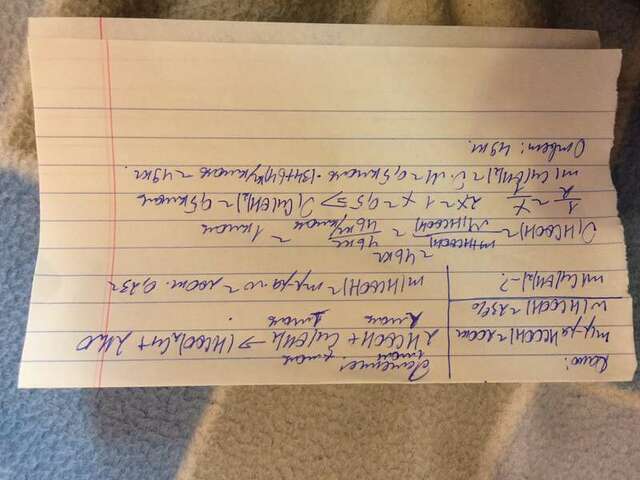 Дано:
m(р-ра HCOOH)=200кг
w(HCOOH)=23%
m(Cu(OH)₂)-?
Решение:
1моль xмоль
2HCOOH + Cu(OH)₂ → (HCOO)₂Cu + 2H₂O
2моль 1моль
m(HCOOH)= mр-ра·w = 200кг·0,23=
=46кг
ϑ(HCOOH)= m(HCOOH)/M(HCOOH) = 46кг/46 кг/кмоль = 1кмоль
1/2 = x/1 2x=1 x=0,5 => ϑ(Cu(OH)₂)=0,5кмоль
m(Cu(OH)₂)=ϑ·M=0,5кмоль·(34+64)кг/кмоль=49кг.
Ответ: 49кг.